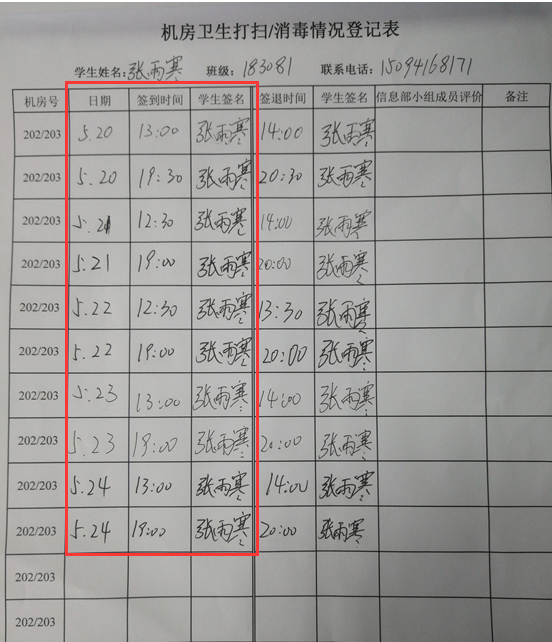 机房卫生打扫/消毒情况登记表
学生姓名:张雨寒 班级:183081 联系电话:15094168171
机房号 日期 签到时间 学生签名 签退时间 学生签名 信息部小组成员评价 备注
202/203 5.20 13:00 张雨寒 14:00 张雨寒
202/203 5.20 19:30 张雨寒 20:30 张雨寒
202/203 5.21 12:30 张雨寒 14:00 张雨寒
202/203 5.21 19:00 张雨寒 20:00 张雨寒
202/203 5.22 12:30 张雨寒 13:30 张雨寒
202/203 5.22 19:00 张雨寒 20:00 张雨寒
202/203 5.23 13:00 张雨寒 14:00 张雨寒
202/203 5.23 19:00 张雨寒 20:00 张雨寒
202/203 5.24 13:00 张雨寒 14:00 张雨寒
202/203 5.24 19:00 张雨寒 20:00 张雨寒
202/203
202/203